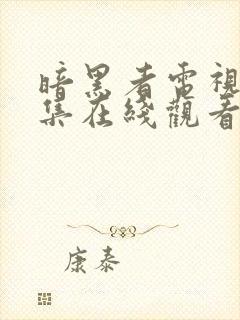 暗黑者電視
集在綫觀看
康泰